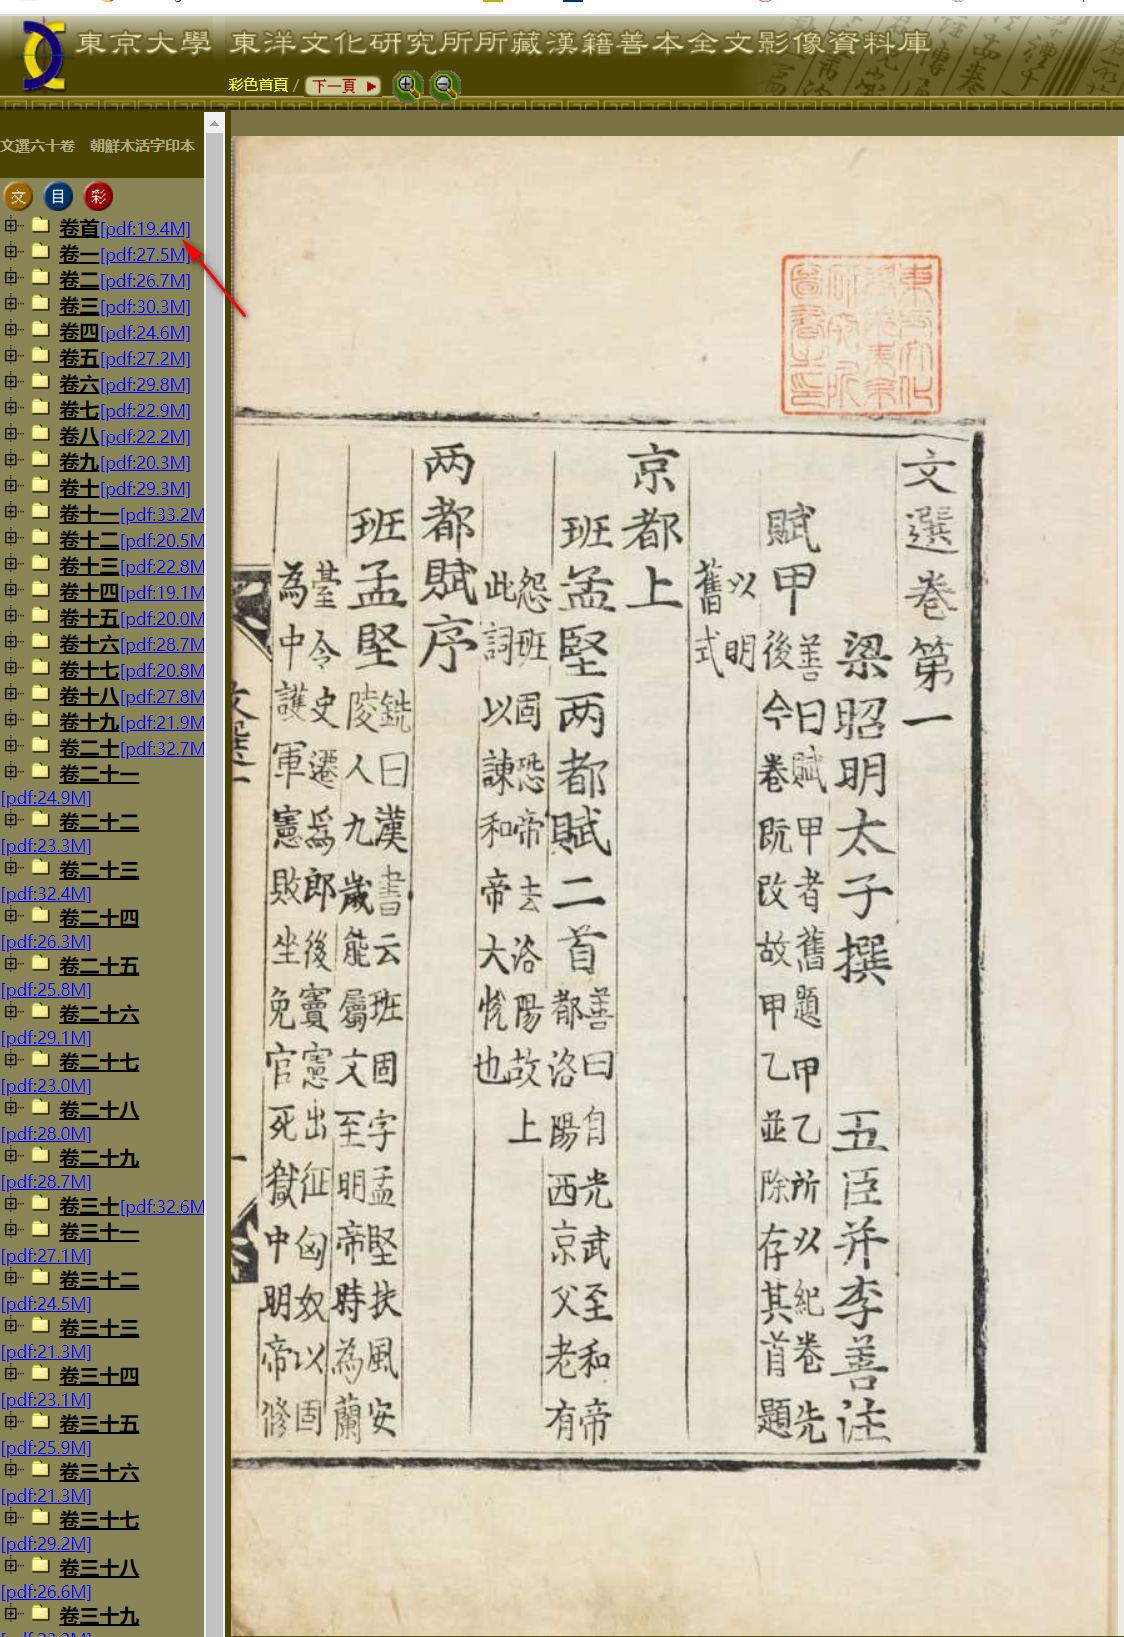 東京大學 東洋文化研究所所藏漢籍善本全文影像資料庫
彩色首頁 / 下一頁
文選六十卷 朝鮮木活字印本
文 目 彩
卷首[pdf:19.4M]
卷一[pdf:27.5M]
卷二[pdf:26.7M]
卷三[pdf:30.3M]
卷四[pdf:24.6M]
卷五[pdf:27.2M]
卷六[pdf:29.8M]
卷七[pdf:22.9M]
卷八[pdf:22.2M]
卷九[pdf:20.3M]
卷十[pdf:29.3M]
卷十一[pdf:33.2M
卷十二[pdf:20.5M
卷十三[pdf:22.8M
卷十四[pdf:19.1M
卷十五[pdf:20.0M
卷十六[pdf:28.7M
卷十七[pdf:20.8M
卷十八[pdf:27.8M
卷十九[pdf:21.9M
卷二十[pdf:32.7M
卷二十一
[pdf:24.9M]
卷二十二
[pdf:23.3M]
卷二十三
[pdf:32.4M]
卷二十四
[pdf:26.3M]
卷二十五
[pdf:25.8M]
卷二十六
[pdf:29.1M]
卷二十七
[pdf:23.0M]
卷二十八
[pdf:28.0M]
卷二十九
[pdf:28.7M]
卷三十[pdf:32.6M
卷三十一
[pdf:27.1M]
卷三十二
[pdf:24.5M]
卷三十三
[pdf:21.3M]
卷三十四
[pdf:23.1M]
卷三十五
[pdf:25.9M]
卷三十六
[pdf:21.3M]
卷三十七
[pdf:29.2M]
卷三十八
[pdf:26.6M]
卷三十九
文選卷第一
梁昭明太子撰 五臣并李善注
賦甲
善曰賦甲者舊題甲乙所以紀卷先
後今卷既改故甲乙並除存其首題
以明
舊式
京都上
班孟堅两都賦二首
善曰自光武至和帝
都洛陽西京父老有
怨班固恐帝去洛陽故上
此詞以諫和帝大恱也
两都賦序
班孟堅
銑曰漢書云班固字孟堅扶風安
陵人九歲能屬文至明帝時為蘭
臺令史遷爲郎後竇憲出征匈奴以固
為中護軍憲敗坐免官死獄中明帝修